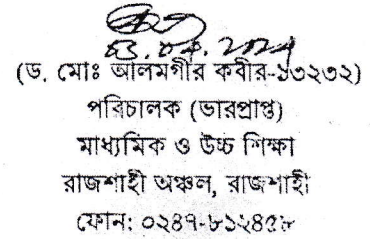 (ড. মোঃ আলমগীর কবীর-১৩২৩২)
পরিচালক (ভারপ্রাপ্ত)
মাধ্যমিক ও উচ্চ শিক্ষা
রাজশাহী অঞ্চল, রাজশাহী
ফোন: ০২৪৭-৮১২৪৫৮